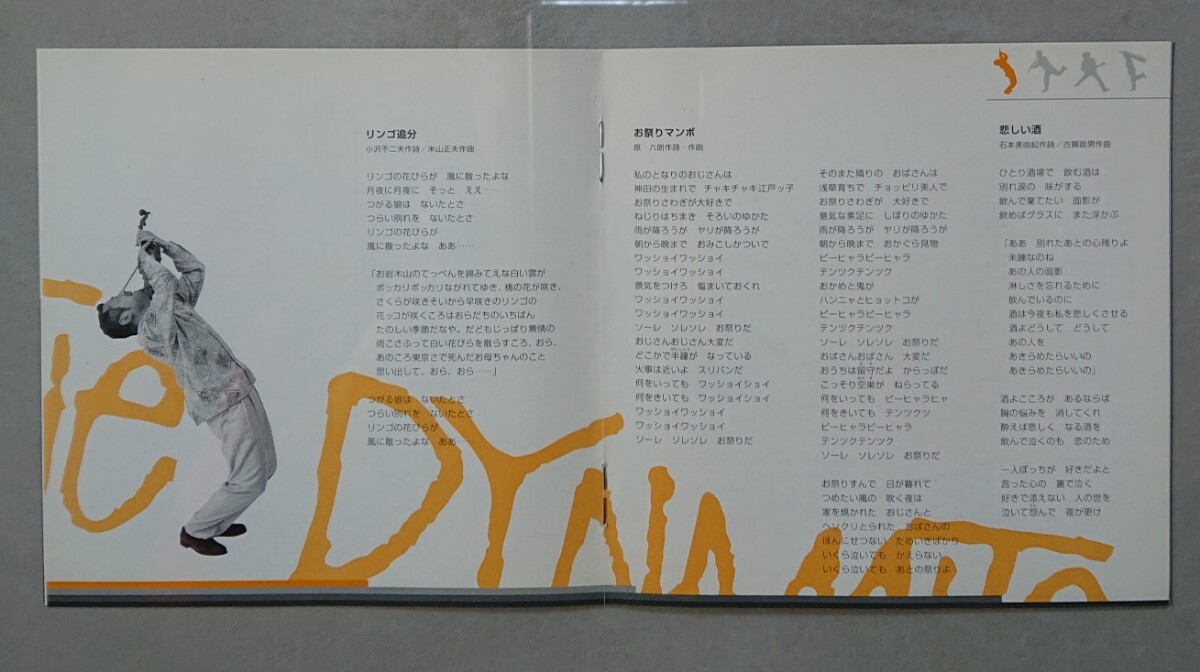 リンゴ追分
小沢不二夫作詩／米山正夫作曲
リンゴの花びらが 風に散ったよな
月夜に月夜に そっと ええ……
つがる娘は ないたとさ
つらい別れを ないたとさ
リンゴの花びらが
風に散ったよな ああ……
「お岩木山のてっぺんを錦みてえな白い雲が
ポッカリポッカリながれてゆき、桃の花が咲き、
さくらが咲きそいから早咲きのリンゴの
花ッコが咲くころはおらだちのいちばん
たのしい季節だなや。だどもじっぱり無情の
雨こさふって白い花びらを散らすころ、おら、
あのころ東京さで死んだお母ちゃんのこと
思い出して、おら、おら……」
つがる娘は ないたとさ
つらい別れを ないたとさ
リンゴの花びらが
風に散ったよな ああ……
お祭りマンボ
原 六朗作詩・作曲
私のとなりのおじさんは
神田の生まれで チャキチャキ江戸ッ子
お祭りさわぎが大好きで
ねじりはちまき そろいのゆかた
雨が降ろうが ヤリが降ろうが
朝から晩まで おみこしかついで
ワッショイワッショイ
ワッショイワッショイ
景気をつけろ 塩まいておくれ
ワッショイワッショイ
ワッショイワッショイ
ソーレ ソレソレ お祭りだ
おじさんおじさん大変だ
どこかで半鐘が なっている
火事は近いよ スリバンだ
何をいっても ワッショイショイ
何をきいても ワッショイショイ
ワッショイワッショイ
ワッショイワッショイ
ソーレ ソレソレ お祭りだ
そのまた隣りの おばさんは
浅草育ちで チョッピリ美人で
お祭りさわぎが 大好きで
意気な素足に しぼりのゆかた
雨が降ろうが ヤリが降ろうが
朝から晩まで おかぐら見物
ピーヒャラピーヒャラ
テンツクテンツク
おかめと鬼が
ハンニャとヒョットコが
ピーヒャラピーヒャラ
テンツクテンツク
ソーレ ソレソレ お祭りだ
おばさんおばさん 大変だ
おうちは留守だよ からっぽだ
こっそり空巣が ねらってる
何をいっても ピーヒャラヒャ
何をきいても テンツクツ
ピーヒャラピーヒャラ
テンツクテンツク
ソーレ ソレソレ お祭りだ
お祭りすんで 日が暮れて
つめたい風の 吹く夜は
家を焼かれた おじさんと
ヘソクリとられた おばさんの
ほんにせつない ためいきばかり
いくら泣いても かえらない
いくら泣いても あとの祭りよ
悲しい酒
石本美由起作詩／古賀政男作曲
ひとり酒場で 飲む酒は
別れ涙の 味がする
飲んで棄てたい 面影が
飲めばグラスに また浮かぶ
「ああ 別れたあとの心残りよ
未練なのね
あの人の面影
淋しさを忘れるために
飲んでいるのに
酒は今夜も私を悲しくさせる
酒よどうして どうして
あの人を
あきらめたらいいの
あきらめたらいいの」
酒よこころが あるならば
胸の悩みを 消してくれ
酔えば悲しく なる酒を
飲んで泣くのも 恋のため
一人ぼっちが 好きだよと
言った心の 裏で泣く
好きで添えない 人の世を
泣いて怨んで 夜が更け
The DYNAMITE